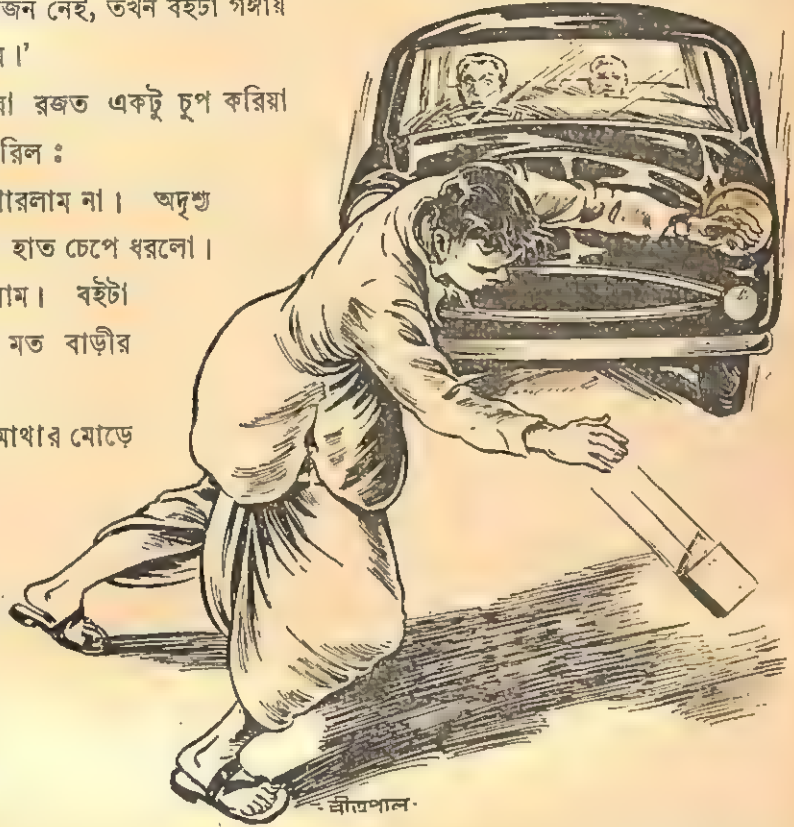 জন নেই, তখন বইটা গঙ্গায়
।'
রজত একটু চুপ করিয়া
রিল :
ারলাম না। অদৃশ্য
হাত চেপে ধরলো।
াম। বইটা
মত বাড়ীর
মাথার মোড়ে